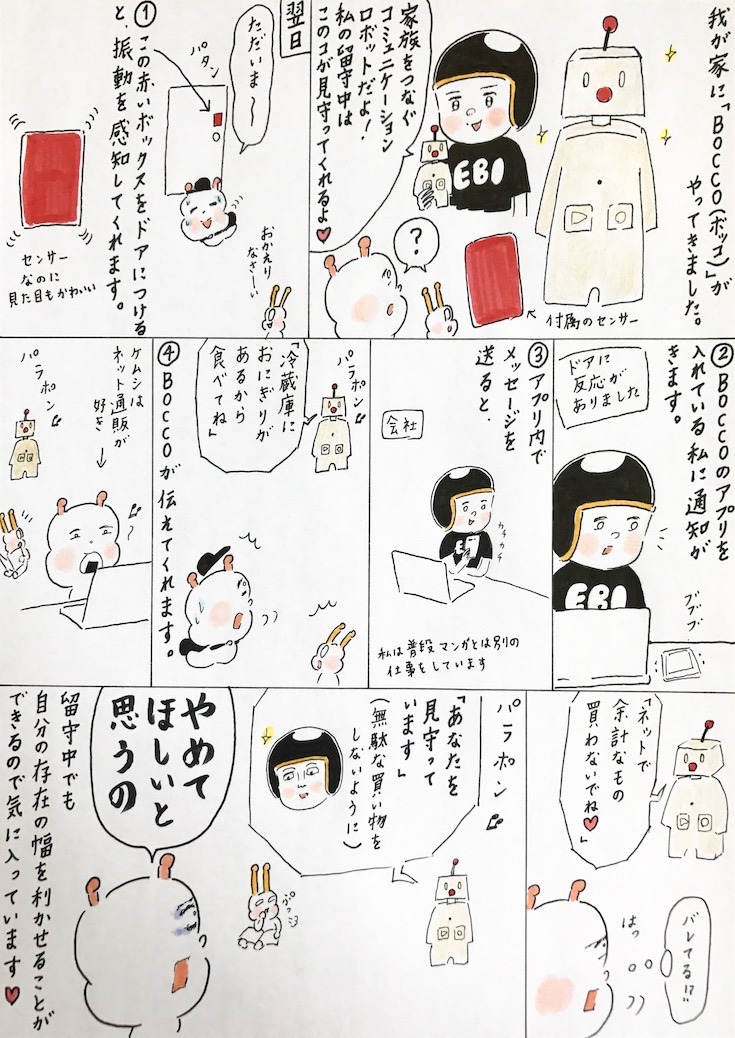 我が家に「BOCCO(ボッコ)」が
やってきました。
家族をつなぐ
コミュニケーション
ロボットだよ!
私の留守中は
このコが見守ってくれるよ♥
EBI
?
付属のセンサー
翌日
ただいま〜
バタン
おかえり
なさーい
①この赤いボックスをドアにつける
と、振動を感知してくれます。
センサー
なのに
見た目もかわいい
②BOCCOのアプリを
入れている私に通知が
きます。
ドアに
反応が
ありました
EBI
ブブブ
③アプリ内で
メッセージを
送ると、
会社
カチカチ
EBI
私は普段マンガとは別の
仕事をしています
パラポン♪
「冷蔵庫に
おにぎりが
あるから
食べてね」
④BOCCOが伝えてくれます。
ケムシは
ネット通販が
好き
パラポン♪
「ネットで
余計なもの
買わないでね♥」
バレてる!?
はっ
パラポン♪
「あなたを
見守って
います」
(無駄な買い物を
しないように)
プッ
やめて
ほしいと
思うの
留守中でも
自分の存在の幅を利かせることが
できるので気に入っています♥